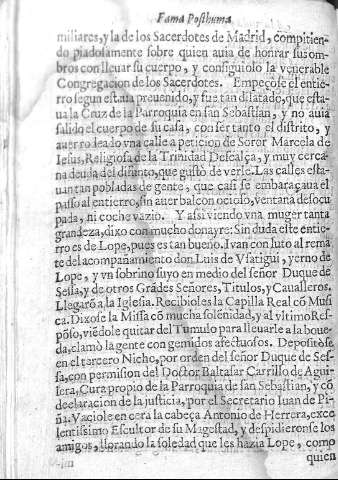 Fama Posthuma
miliares, y la de los Sacerdotes de Madrid, compitien-
do piadosamente sobre quien auia de honrar sus om-
bros con lleuar su cuerpo, y consiguiolo la venerable
Congregacion de los Sacerdotes. Empeçose el entie-
rro segun estaua preuenido, y fue tan dilatado, que esta-
ua la Cruz de la Parroquia en san Sebastian, y no auia
salido el cuerpo de su casa, con ser tanto el distrito, y
auer rodeado vna calle a peticion de Soror Marcela de
Iesus, Religiosa de la Trinidad Descalça, y muy cerca-
na deuda del difunto, que gustò de verle. Las calles esta-
uan tan pobladas de gente, que casi se embaraçaua el
passo al entierro, sin auer balcon ocioso, ventana desocu
pada, ni coche vazio. Y assi viendo vna muger tanta
grandeza, dixo con mucho donayre: Sin duda este entie-
rro es de Lope, pues es tan bueno. Iuan con luto al rema
te del acompañamiento don Luis de Vsategui, yerno de
Lope, y vn sobrino suyo en medio del señor Duque de
Sessa, y de otros Grãdes Señores, Titulos, y Caualleros.
Llegarõ a la Iglesia. Recibioles la Capilla Real cõ Musi
ca. Dixose la Missa cõ mucha solenidad, y al vltimo Res-
põso, viẽdole quitar del Tumulo para lleuarle a la boue-
da, clamò la gente con gemidos afectuosos. Depositòse
en el tercero Nicho, por orden del señor Duque de Ses-
sa, con permision del Doctor Baltasar Carrillo de Agui-
lera, Cura propio de la Parroquia de san Sebastian, y cõ
declaracion de la justicia, por el Secretario Iuan de Pi-
ña. Vaciole en cera la cabeça Antonio de Herrera, exce
lentissimo Escultor de su Magestad, y despidieronse los
amigos, llorando la soledad que les hazia Lope, como
quien